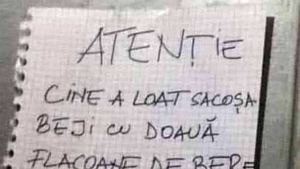 ATENȚIE
CINE A LOAT SACOȘA
BEJI CU DOAUĂ
FLACOANE DE BERE